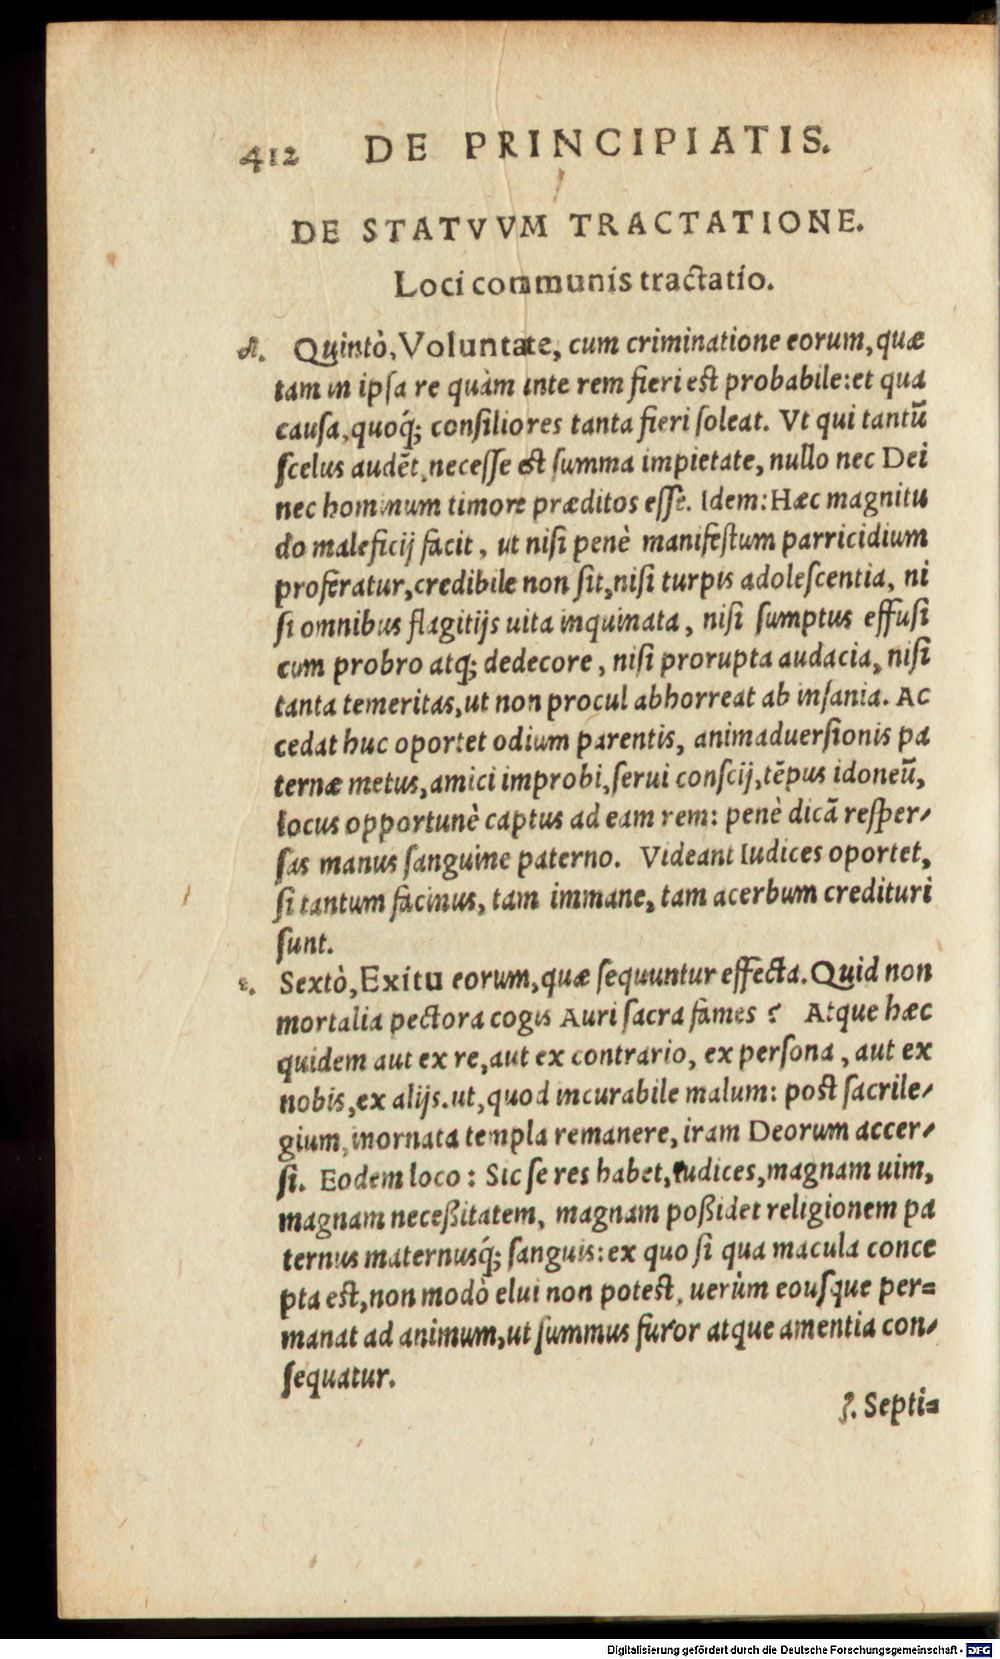 412 DE PRINCIPIATIS.
DE STATVVM TRACTATIONE.
Loci communis tractatio.
Quintò, Voluntate, cum criminatione eorum, quæ
tam in ipſa re quàm ante rem fieri eſt probabile: et qua
cauſa, quoq́; conſiliores tanta fieri ſoleat. Vt qui tantũ
ſcelus audẽt, neceſſe eſt ſumma impietate, nullo nec Dei
nec hominum timore præditos eſſe. Idem: Hæc magnitu
do maleficij facit, ut niſi penè manifeſtum parricidium
proferatur, credibile non ſit, niſi turpis adoleſcentia, ni
ſi omnibus flagitijs uita inquinata, niſi ſumptus effuſi
cum probro atq; dedecore, niſi prorupta audacia, niſi
tanta temeritas, ut non procul abhorreat ab inſania. Ac
cedat huc oportet odium parentis, animaduerſionis pa
ternæ metus, amici improbi, ſerui conſcij, tẽpus idoneũ,
locus opportunè captus ad eam rem: penè dicã reſper-
ſas manus ſanguine paterno. Videant Iudices oportet,
ſi tantum facinus, tam immane, tam acerbum credituri
ſunt.
Sextò, Exitu eorum, quæ ſequuntur effecta. Quid non
mortalia pectora cogis Auri ſacra fames? Atque hæc
quidem aut ex re, aut ex contrario, ex perſona, aut ex
nobis, ex alijs. ut, quod incurabile malum: poſt ſacrile-
gium, inornata templa remanere, iram Deorum accer-
ſi. Eodem loco: Sic ſe res habet, iudices, magnam uim,
magnam neceßitatem, magnam poßidet religionem pa
ternus maternusq́; ſanguis: ex quo ſi qua macula conce
pta eſt, non modò elui non poteſt, uerùm eouſque per=
manat ad animum, ut ſummus furor atque amentia con-
ſequatur.
Septi=
Digitalisierung gefördert durch die Deutsche Forschungsgemeinschaft - DFG